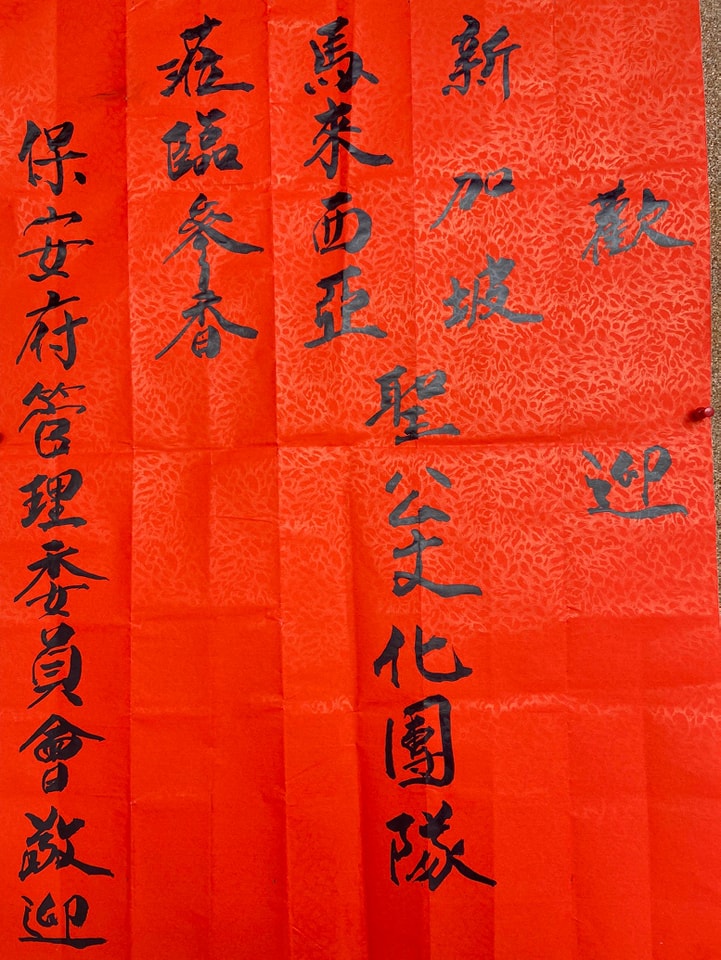 歡迎
新加坡
馬來西亞
聖公文化團隊
蒞臨參香
保安府管理委員會敬迎